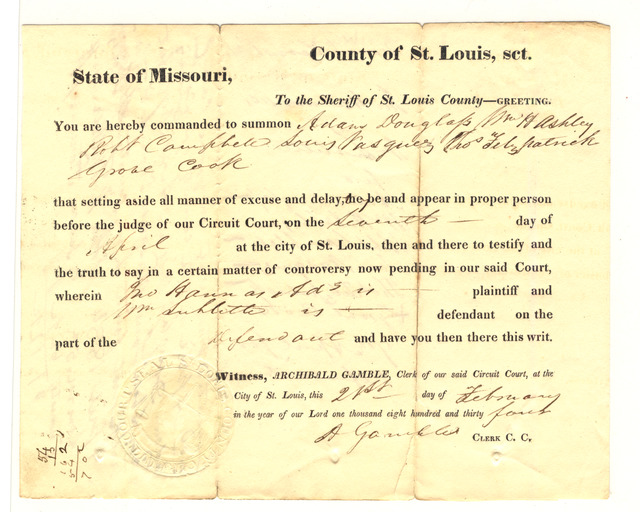 County of St. Louis, sct.
State of Missouri,
To the Sheriff of St. Louis County—GREETING.
You are hereby commanded to summon Adam Douglass Wm H Ashley
Robt Campbell Louis Vasquez Thos Fitzpatrick
Grove Cook
that setting aside all manner of excuse and delay, they be and appear in proper person
before the judge of our Circuit Court, on the seventh day of
April at the city of St. Louis, then and there to testify and
the truth to say in a certain matter of controversy now pending in our said Court,
wherein Jno Hanna as Ad is plaintiff and
Wm Sublette is defendant on the
part of the defendant and have you then there this writ.
Witness, ARCHIBALD GAMBLE, Clerk of our said Circuit Court, at the
City of St. Louis, this 21st day of February
in the year of our Lord one thousand eight hundred and thirty four
A Gamble CLERK C. C.